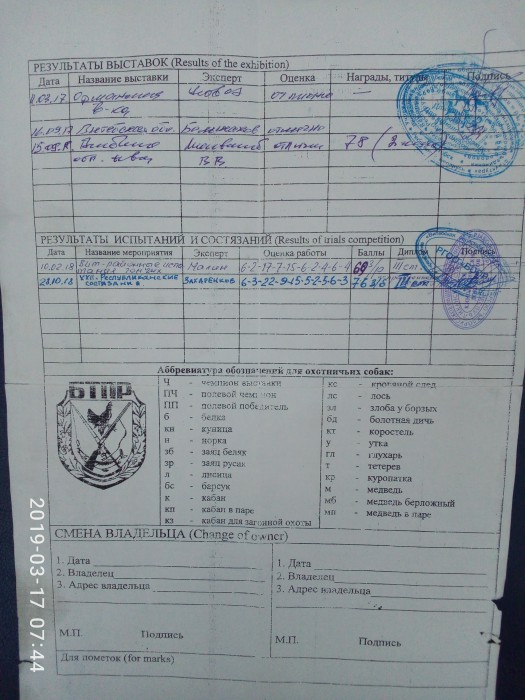 РЕЗУЛЬТАТЫ ВЫСТАВОК (Results of the exhibition)
Дата Название выставки Эксперт Оценка Награды, титулы Подпись
отлично
отлично
78
РЕЗУЛЬТАТЫ ИСПЫТАНИЙ И СОСТЯЗАНИЙ (Results of trials competition)
Дата Название мероприятия Эксперт Оценка работы Баллы Диплом Подпись
10.02.18 6-2-17-7-15-6-2-4-6-4 III ст
28.10.18 VXII-РЕСПУБЛИКАНСКИЕ СОСТЯЗАНИЯ ЗАХАРЕНКОВ 6-3-22-9-15-5-2-5-6-3 76 III ст
Аббревиатура обозначений для охотничьих собак:
БТПР
Ч - чемпион выставки
ПЧ - полевой чемпион
ПП - полевой победитель
б - белка
кн - куница
н - норка
зб - заяц беляк
зр - заяц русак
л - лисица
бс - барсук
к - кабан
кп - кабан в паре
кз - кабан для загонной охоты
кс - кровяной след
лс - лось
зл - злоба у борзых
бд - болотная дичь
кт - коростель
у - утка
гл - глухарь
т - тетерев
кр - куропатка
м - медведь
мб - медведь берложный
мп - медведь в паре
СМЕНА ВЛАДЕЛЬЦА (Change of owner)
1. Дата
2. Владелец
3. Адрес владельца
М.П. Подпись
1. Дата
2. Владелец
3. Адрес владельца
М.П. Подпись
Для пометок (for marks)
2019-03-17 07:44